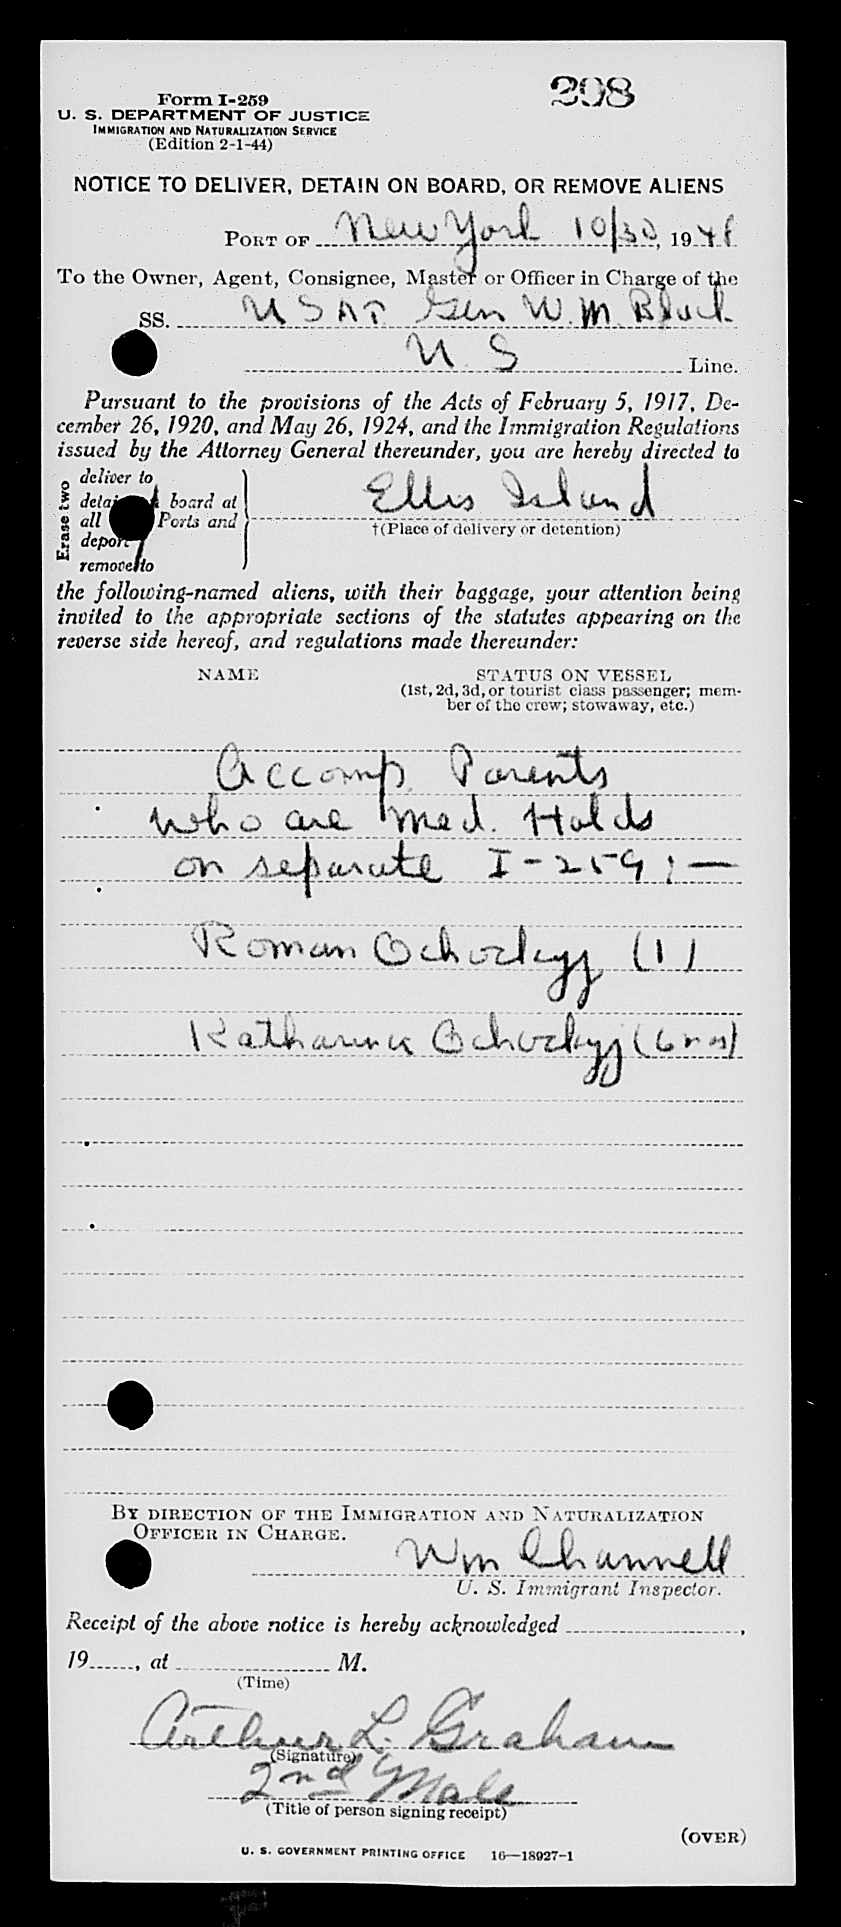 298
Form I-259
U. S. DEPARTMENT OF JUSTICE
IMMIGRATION AND NATURALIZATION SERVICE
(Edition 2-1-44)
NOTICE TO DELIVER, DETAIN ON BOARD, OR REMOVE ALIENS
PORT OF New York 10/30, 1948
To the Owner, Agent, Consignee, Master or Officer in Charge of the
SS. USAT Gen W. M. Black
U S Line.
Pursuant to the provisions of the Acts of February 5, 1917, De-
cember 26, 1920, and May 26, 1924, and the Immigration Regulations
issued by the Attorney General thereunder, you are hereby directed to
Erase two
deliver to
board at
all Ports and
deport
remove to
Ellis Island
†(Place of delivery or detention)
the following-named aliens, with their baggage, your attention being
invited to the appropriate sections of the statutes appearing on the
reverse side hereof, and regulations made thereunder:
NAME STATUS ON VESSEL
(1st, 2d, 3d, or tourist class passenger; mem-
ber of the crew; stowaway, etc.)
Accomp. Parents
who are Med. Holds
on separate I-259 : —
Roman Ochockyj (1)
Katharina Ochockyj (6 mos)
BY DIRECTION OF THE IMMIGRATION AND NATURALIZATION
OFFICER IN CHARGE.
Wm Channell
U. S. Immigrant Inspector.
Receipt of the above notice is hereby acknowledged ,
19 , at M.
(Time)
Arthur L. Graham
(Signature)
2nd Mate
(Title of person signing receipt)
(OVER)
U. S. GOVERNMENT PRINTING OFFICE 16—18927-1